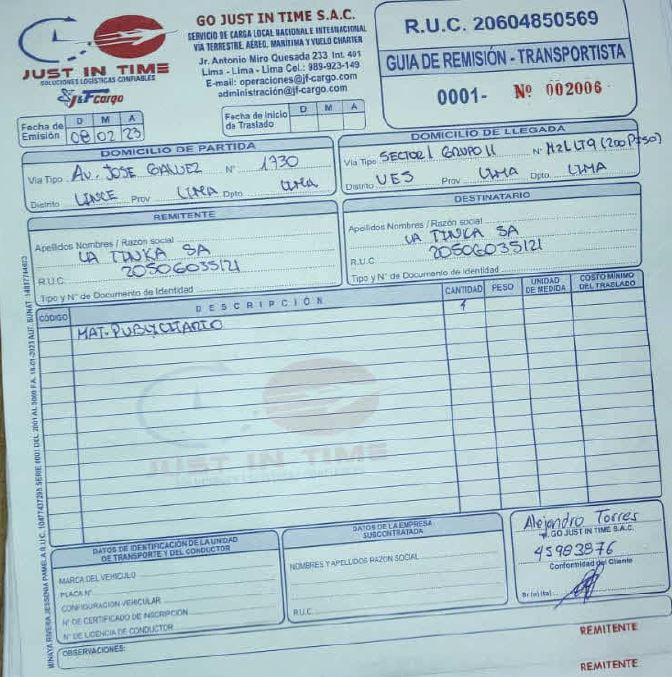 JUST IN TIME
SOLUCIONES LOGÍSTICAS CONFIABLES
J&F Cargo
GO JUST IN TIME S.A.C.
SERVICIO DE CARGA LOCAL NACIONALE INTERNACIONAL
VÍA TERRESTRE, AÉREO, MARÍTIMA Y VUELO CHARTER
Jr. Antonio Miro Quesada 233 Int. 401
Lima - Lima - Lima Cel.: 989-923-149
E-mail: operaciones@jf-cargo.com
administración@jf-cargo.com
R.U.C. 20604850569
GUIA DE REMISIÓN - TRANSPORTISTA
0001- Nº 002006
Fecha de Emisión D M A 08 02 23
Fecha de Inicio de Traslado D M A
DOMICILIO DE PARTIDA
Vía Tipo AV. JOSE GALVEZ Nº 1730
Distrito LINCE Prov LIMA Dpto LIMA
DOMICILIO DE LLEGADA
Vía Tipo SECTOR 1 GRUPO 11 Nº M2 LT9 (200 PISO)
Distrito VES Prov LIMA Dpto. LIMA
REMITENTE
Apellidos Nombres / Razón social LA TINKA SA
R.U.C. 20506035121
Tipo y N° de Documento de Identidad
DESTINATARIO
Apellidos Nombres / Razón social LA TINKA SA
R.U.C. 20506035121
Tipo y N° de Documento de Identidad
CÓDIGO DESCRIPCIÓN CANTIDAD PESO UNIDAD DE MEDIDA COSTO MÍNIMO DEL TRASLADO
MAT-PUBLICITARIO 1
JUST IN TIME
DATOS DE IDENTIFICACIÓN DE LA UNIDAD DE TRANSPORTE Y DEL CONDUCTOR
MARCA DEL VEHICULO
PLACA N°
CONFIGURACIÓN VEHICULAR
N° DE CERTIFICADO DE INSCRIPCIÓN
N° DE LICENCIA DE CONDUCTOR
DATOS DE LA EMPRESA SUBCONTRATADA
NOMBRES Y APELLIDOS RAZON SOCIAL
R.U.C.
Alejandro Torres
p. GO JUST IN TIME S.A.C.
45983876
Conformidad del Cliente
Sr (a) (ta)
OBSERVACIONES:
REMITENTE
REMITENTE